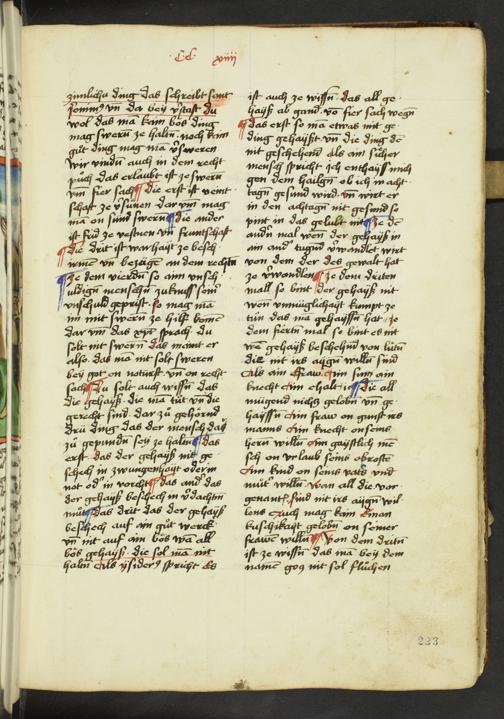 CC xiiij
zimlicha ding das schreibt sant
vnd da bey v̄stast du
wol das ma kain bös ding
mag swern ze haltn̄ noch kain
gůt ding mag ma v̄sweren
wir vindn̄ auch in dem recht
půch das erlaubt ist ze swern
vm fier sach die erst ist veint
schaft ze v̄sůnen dar vm mag
ma on sünd swern die ander
ist frid ze vestnen vn̄ frůntschaft
die drit ist warhait ze besch
vn̄ bezügē an dem rechtn
ze dem vierdn̄ so aim vnsch
uldign̄ menschn̄ zukumt sein
vnschuld geprist so mag ma
im mit swern ze hilf komē
dar vm das sprach du
solt nit swern das maint er
also das ma nit solt sweren
bey got on noturft vn̄ on recht
sach du solt auch wissn̄ das
die gehayß die ma tůt vn̄ die
gerecht sind dar zů gehörnd
drü ding das der mensch
zů gepundn̄ sey ze haltn̄ das
erst das der gehayß nit ge
schech in zwungenhayt oder in
not od' in vorcht das and' das
der gehayß beschech in v̄dachtn̄
můt das drit das der gehayß
beschech auf ain gůt werck
vn̄ nit auf ain bös wā all
bös gehayß die sol ma nit
haltn̄ als ysider9 spricht Es
ist auch ze wissn̄ das all ge
hayß ab gand vō fier sach wegn̄
das erst so ma etwas nit ge
ding gehayßt vn̄ die ding dē
nit geschehend Als ain sicher
mensch spricht ich enthayß mich
gen dem hailgn̄ ob ich in acht
tagn̄ gesund wird vn̄ wirt er
in den achtagn̄ nit gesund so
pint in das gelubt nit Ze dē
andn̄ mal wen der gehayß in
ain and' tugnd v̄wandlet wirt
von dem der des gewalt hat
ze v̄wandlen ze dem driten
mall so bint der gehayß nit
wen vnmüglichayt kumpt ze
tůn das ma gehayssn̄ hat ze
dem fiertn̄ mal so bint es nit
wā gehayß beschehnd von lütn̄
die nit irs aygn̄ willn̄ sind
Als ain fraw ain sun ain
knecht ain ehalt die all
mügend nichtz gelobn̄ vn̄ ge
hayssn̄ Ain fraw on gunst irs
manns Ain knecht on seins
hern willn̄ Ain gaystlich mē
sch on vrlaub seins obrostē
Ain kind on seins vatˢ vnd
můtˢ willn̄ wan all die vor
genant sind nit irs aygn̄ wil
lens Auch mag kain man
kuschikayt gelobn̄ on seiner
frawē willn̄ Von dem dritn̄
ist ze wissn̄ das ma bey dem
namen gotz nit sol flůchen
223